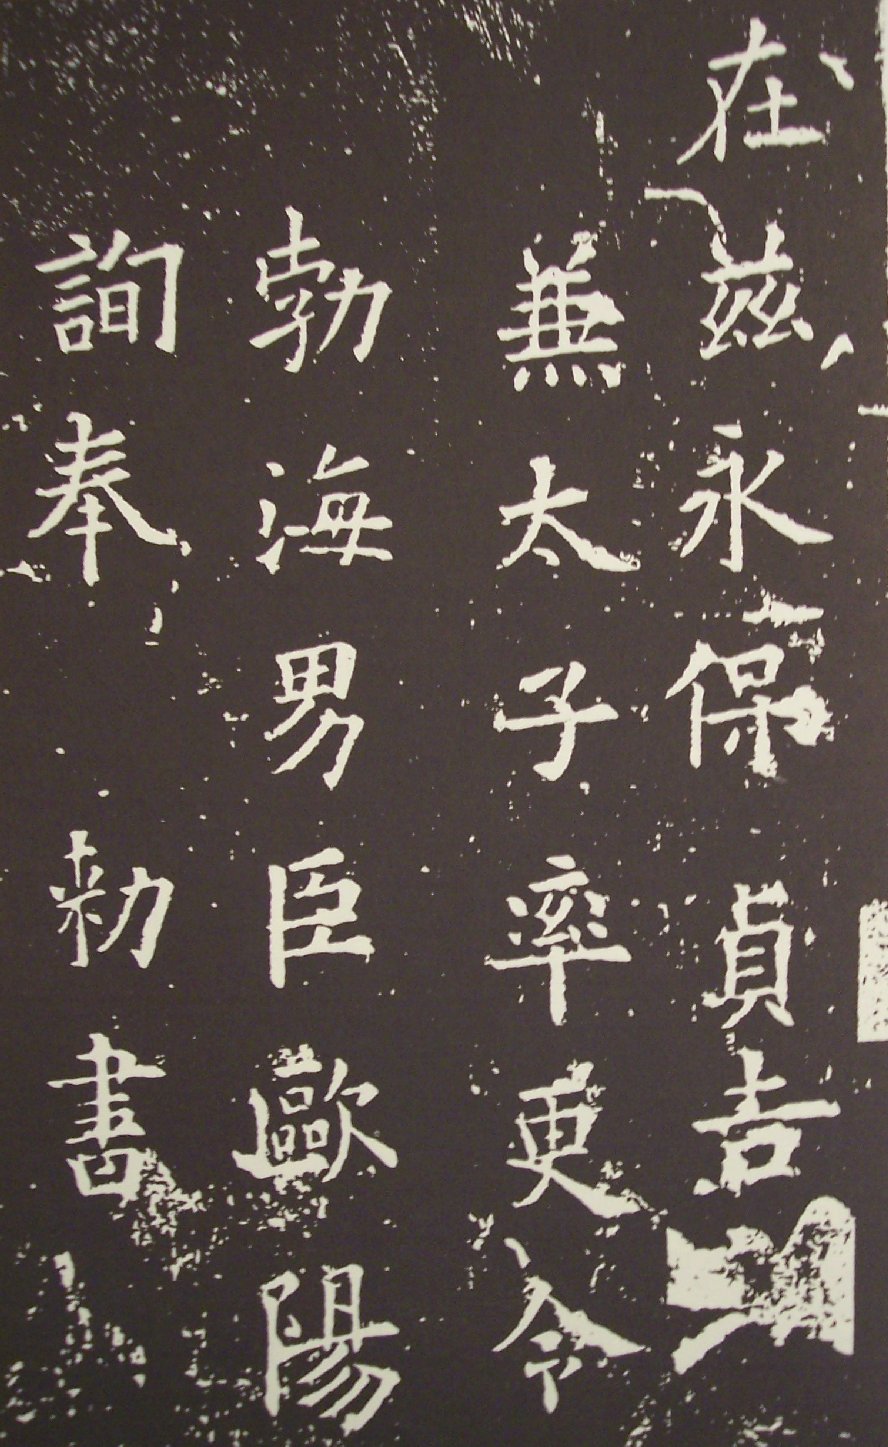 在茲永保貞吉
兼太子率更令
勃海男臣歐陽
詢奉 勑書